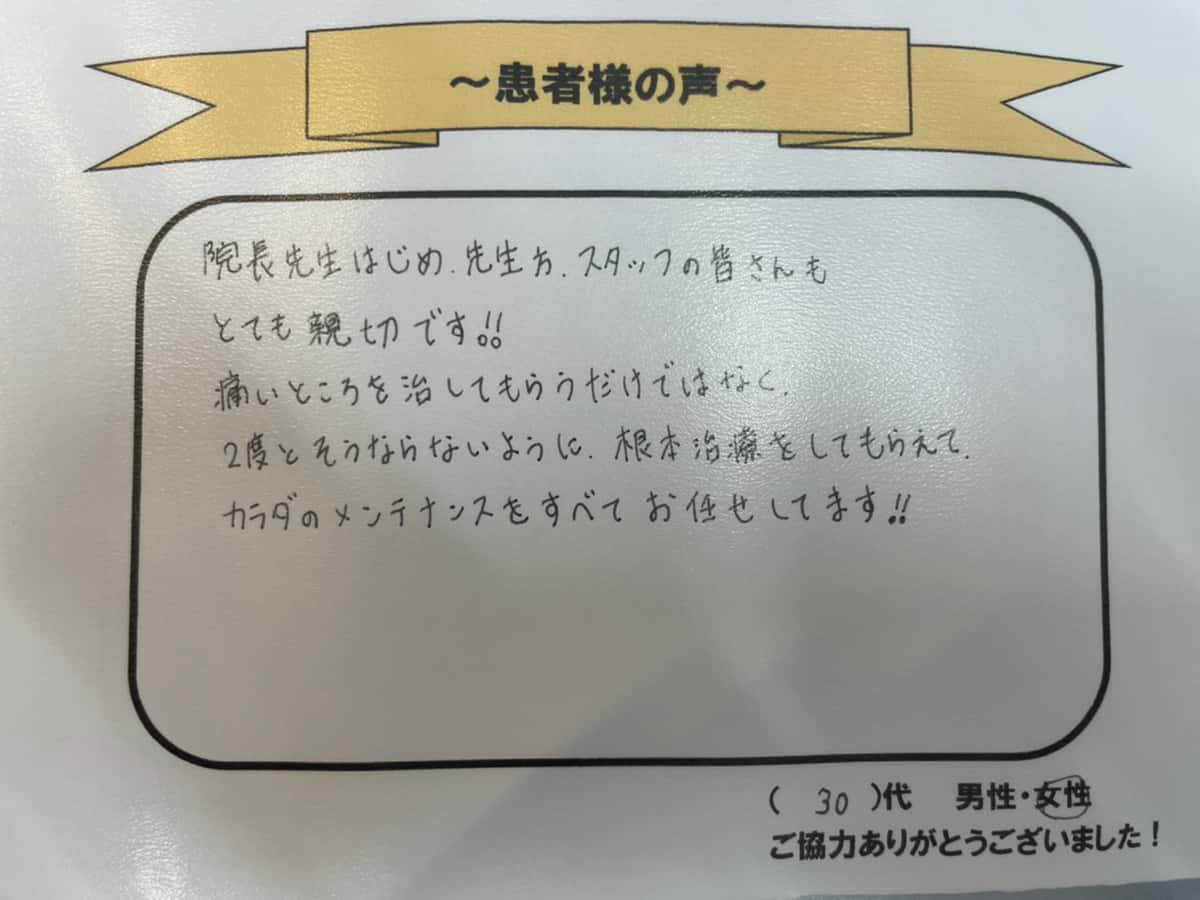 ～患者様の声～
院長先生はじめ、先生方、スタッフの皆さんも
とても親切です!!
痛いところを治してもらうだけではなく、
2度とそうならないように、根本治療をしてもらえて、
カラダのメンテナンスをすべてお任せしてます!!
( 30 )代 男性・女性
ご協力ありがとうございました！